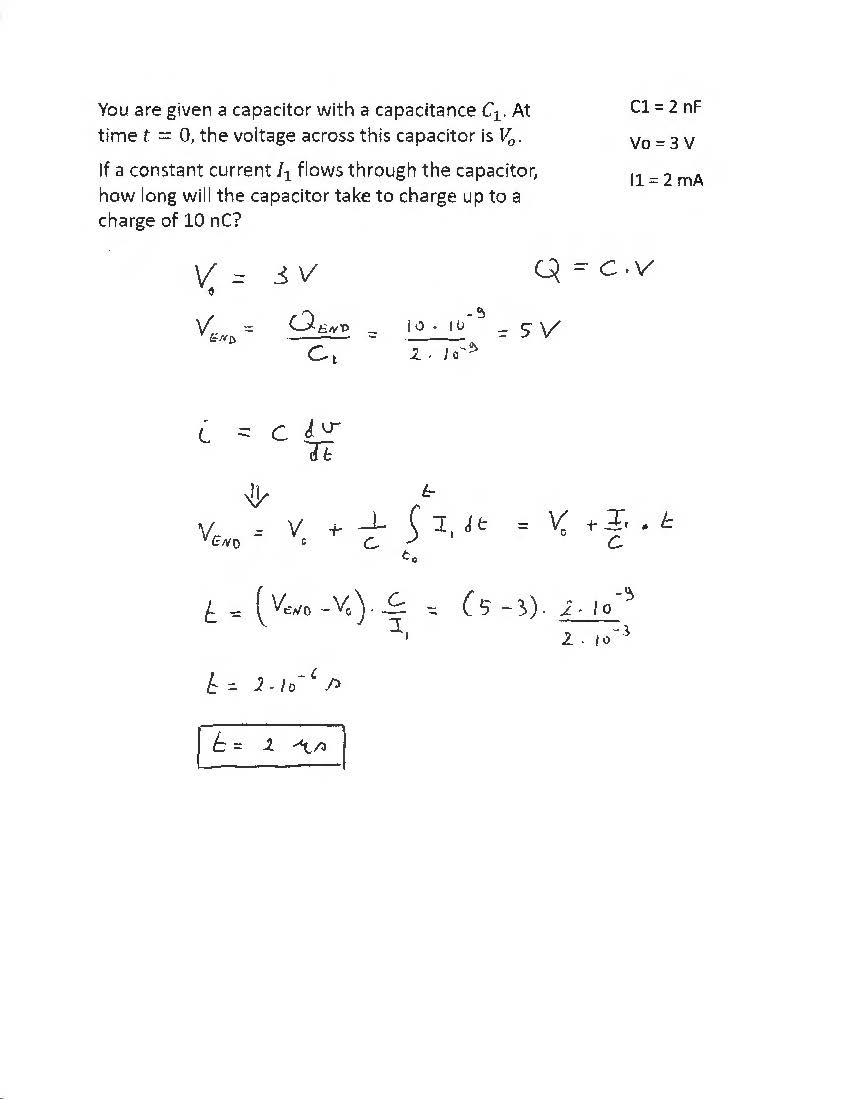 You are given a capacitor with a capacitance C₁. At
time t = 0, the voltage across this capacitor is Vₒ.
If a constant current I₁ flows through the capacitor,
how long will the capacitor take to charge up to a
charge of 10 nC?
C1 = 2 nF
Vo = 3 V
I1 = 2 mA
V₀ = 3 V
Q = C.V
V_END = Q_END / C₁ = 10 · 10⁻⁹ / 2 · 10⁻⁹ = 5 V
i = C dv/dt
⇓
V_END = V₀ + 1/C ∫_{t₀}^{t} I₁ dt = V₀ + I₁/C · t
t = (V_END - V₀) · C/I₁ = (5 - 3) · 2 · 10⁻⁹ / 2 · 10⁻³
t = 2 · 10⁻⁶ s
t = 2 μs